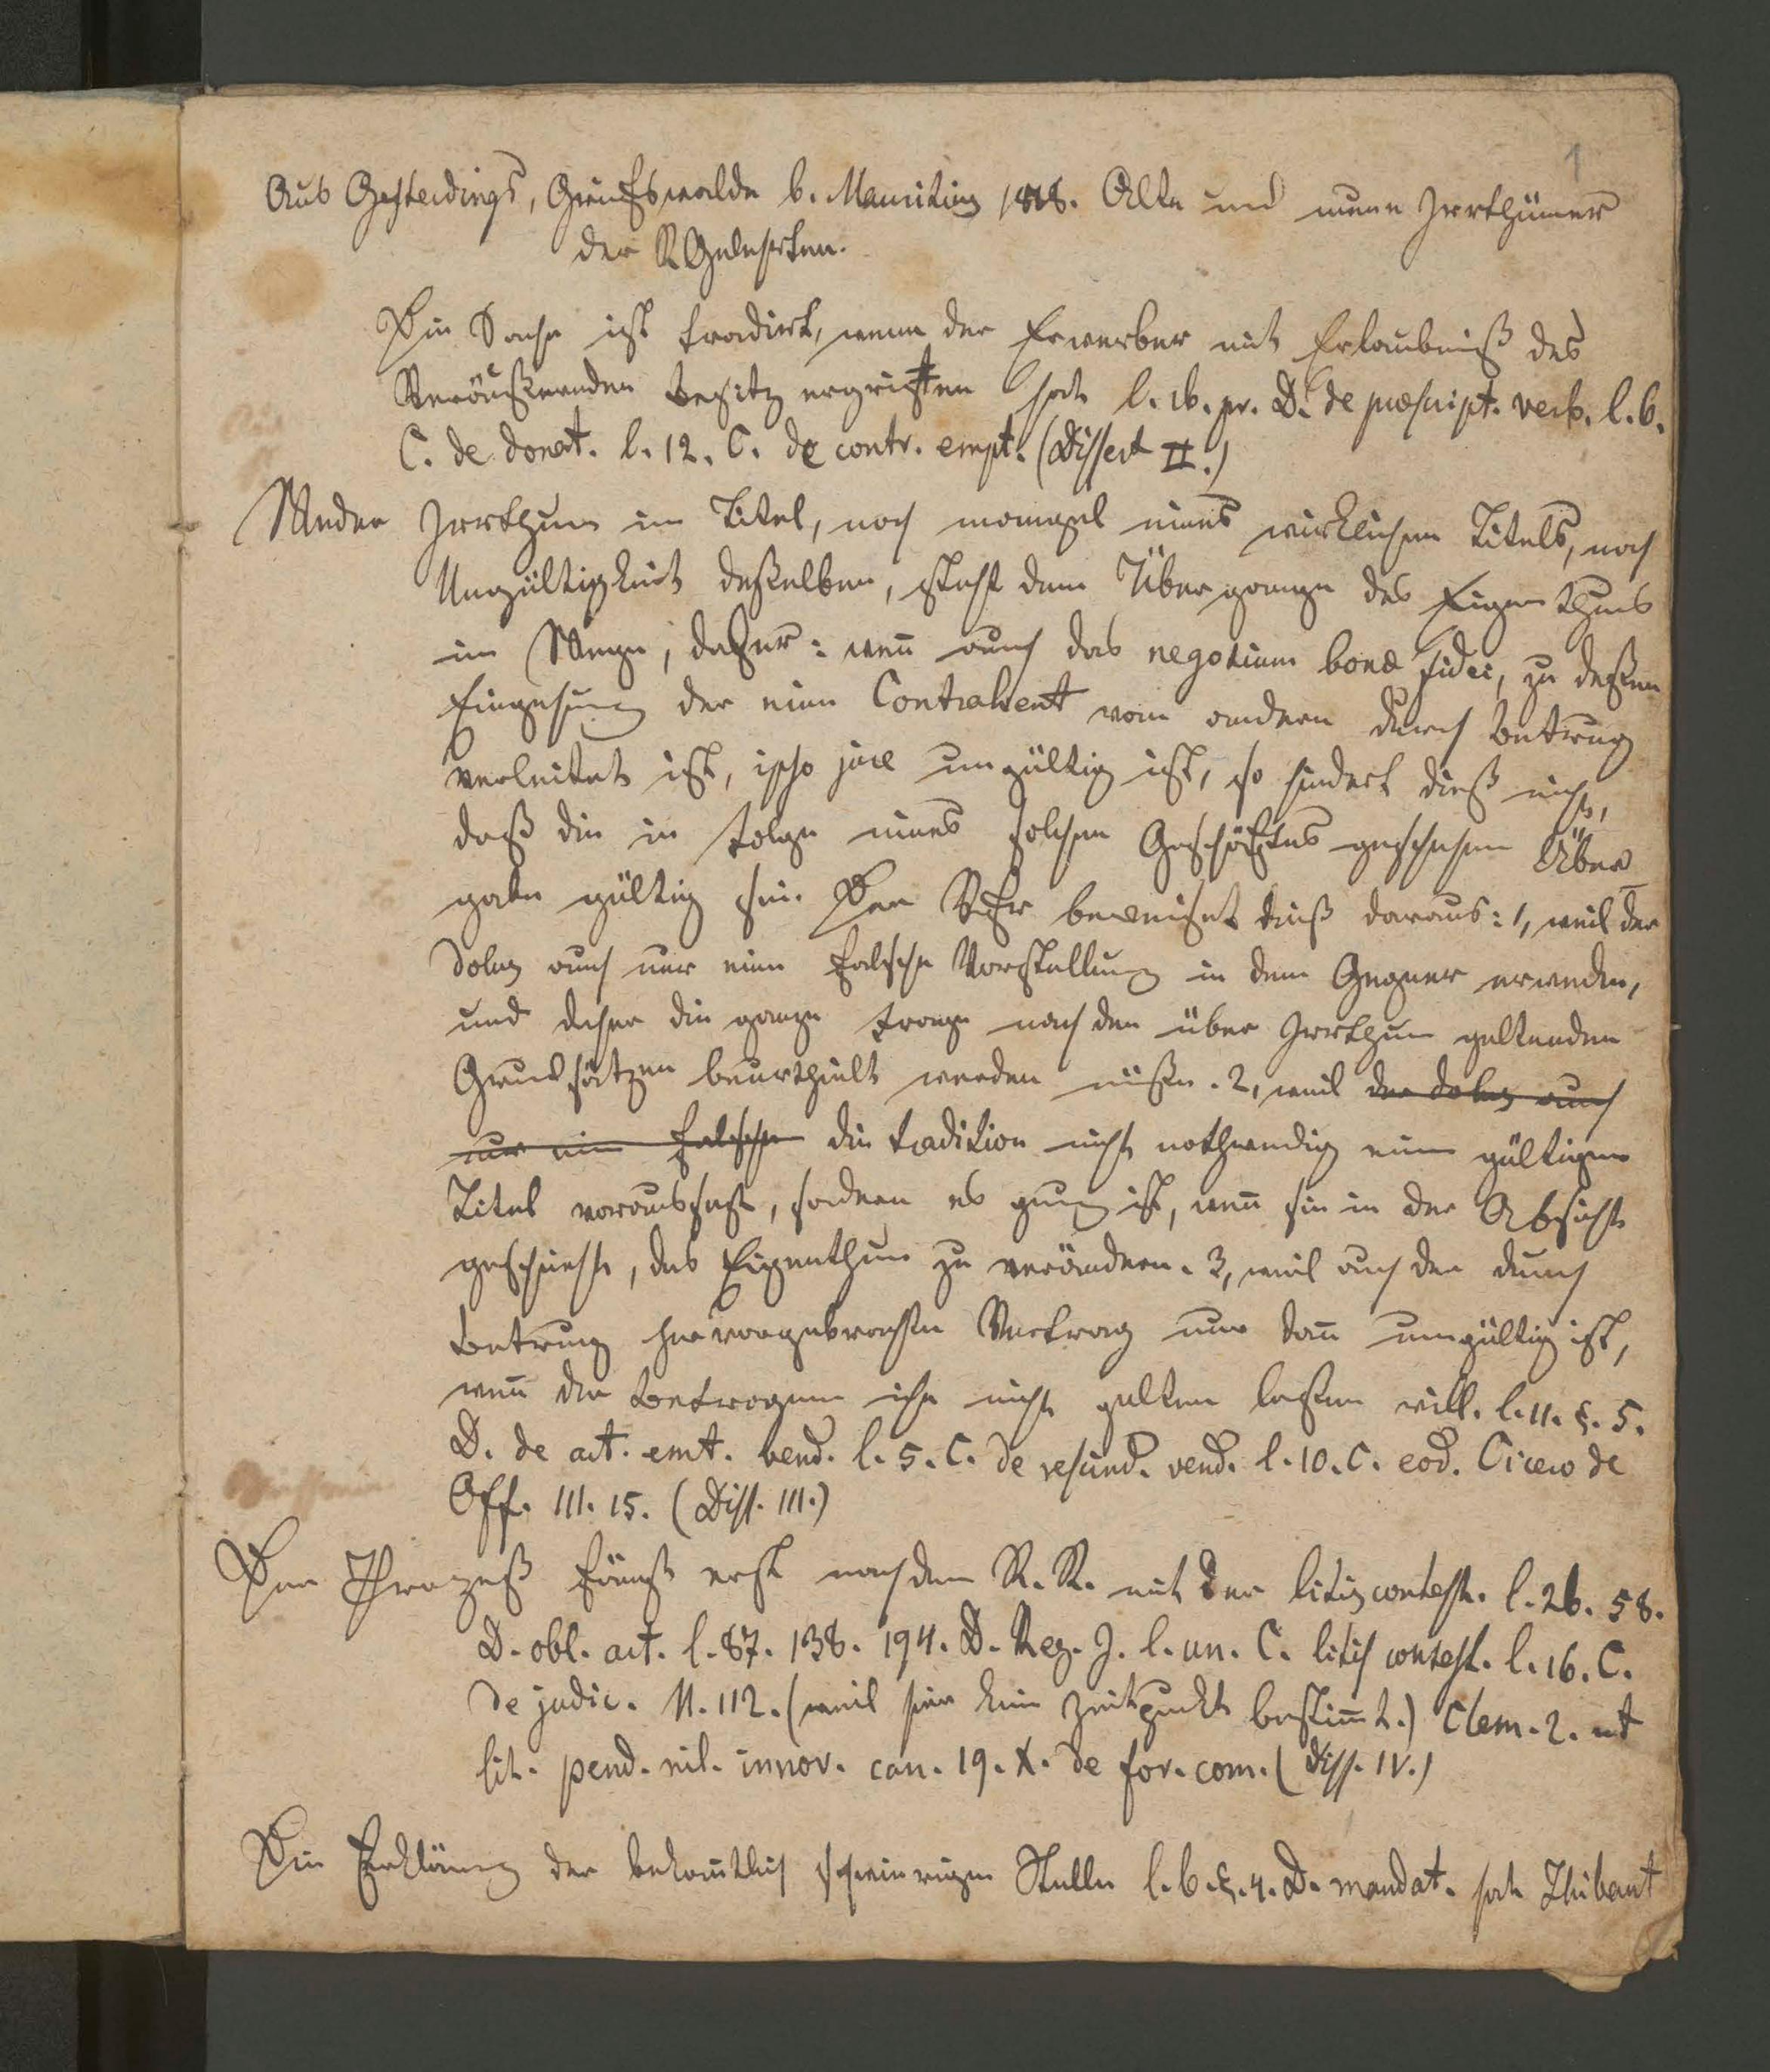 1
Aus Gesterdings, Greifswalde b. Mauritius 1818. Alte und neue Irrthümer
der RGelehrten.
Die Sache ist tradirt, wenn der Erwerber mit Erlaubniß des
Veräußernden Besitz ergriffen hat l. 16. pr. D. de præscript. verb. l. 6.
C. de donat. l. 12. C. de contr. empt. (Dissert II.)
Weder Irrthum im Titel, noch mangel eines wirklichen Titels, noch
Ungültigkeit deßelben, steht dem Übergange des Eigenthums
im Wege; daher: weñ auch das negotium bonæ fidei, zu deßen
Eingehung der eine Contrahent vom andern durch Betrug
verleitet ist, ipso jure ungültig ist, so hindert dieß nicht,
daß die in Folge eines solchen Geschäftes geschehene Über
gabe gültig sei. Der Vfr beweiset dieß daraus: 1, weil der
dolus auch nur eine falsche Vorstellung in dem Gegner erwecken,
und daher die ganze Frage nach den über Irrthum geltenden
Grundsätzen beurtheilt werden müße. 2, weil der dolus auch
nur eine falsche die tradition nicht nothwendig einen gültigen
Titel voraussetzt, sondern es genug ist, weñ sie in der Absicht
geschieht, das Eigenthum zu verändern. 3, weil auch der durch
Betrug hervorgebrachte Vertrag nur dañ ungültig ist,
weñ der Betrogene ihn nicht gelten laßen will. l. 11. §. 5.
D. de act. emt. vend. l. 5. C. de rescind. vend. l. 10. C. eod. Cicero de
Off. III. 15. (Diss. III.)
Der Prozeß fängt erst nach dem R. R. mit der litis contest. l. 26. 58.
D. obl. act. l. 87. 138. 194. D. Reg. J. l. un. C. litis contest. l. 16. C.
de judic. N. 112. (weil hier kein Zeitpuckt bestim̄t.) Clem. 2. ut
lit. pend. nil. innov. can. 19. X. de for. com. (Diss. IV.)
Die Erklärung der bekan̄tlich schwierigen Stelle l. 6. §. 4. D. mandat. hat Thibaut